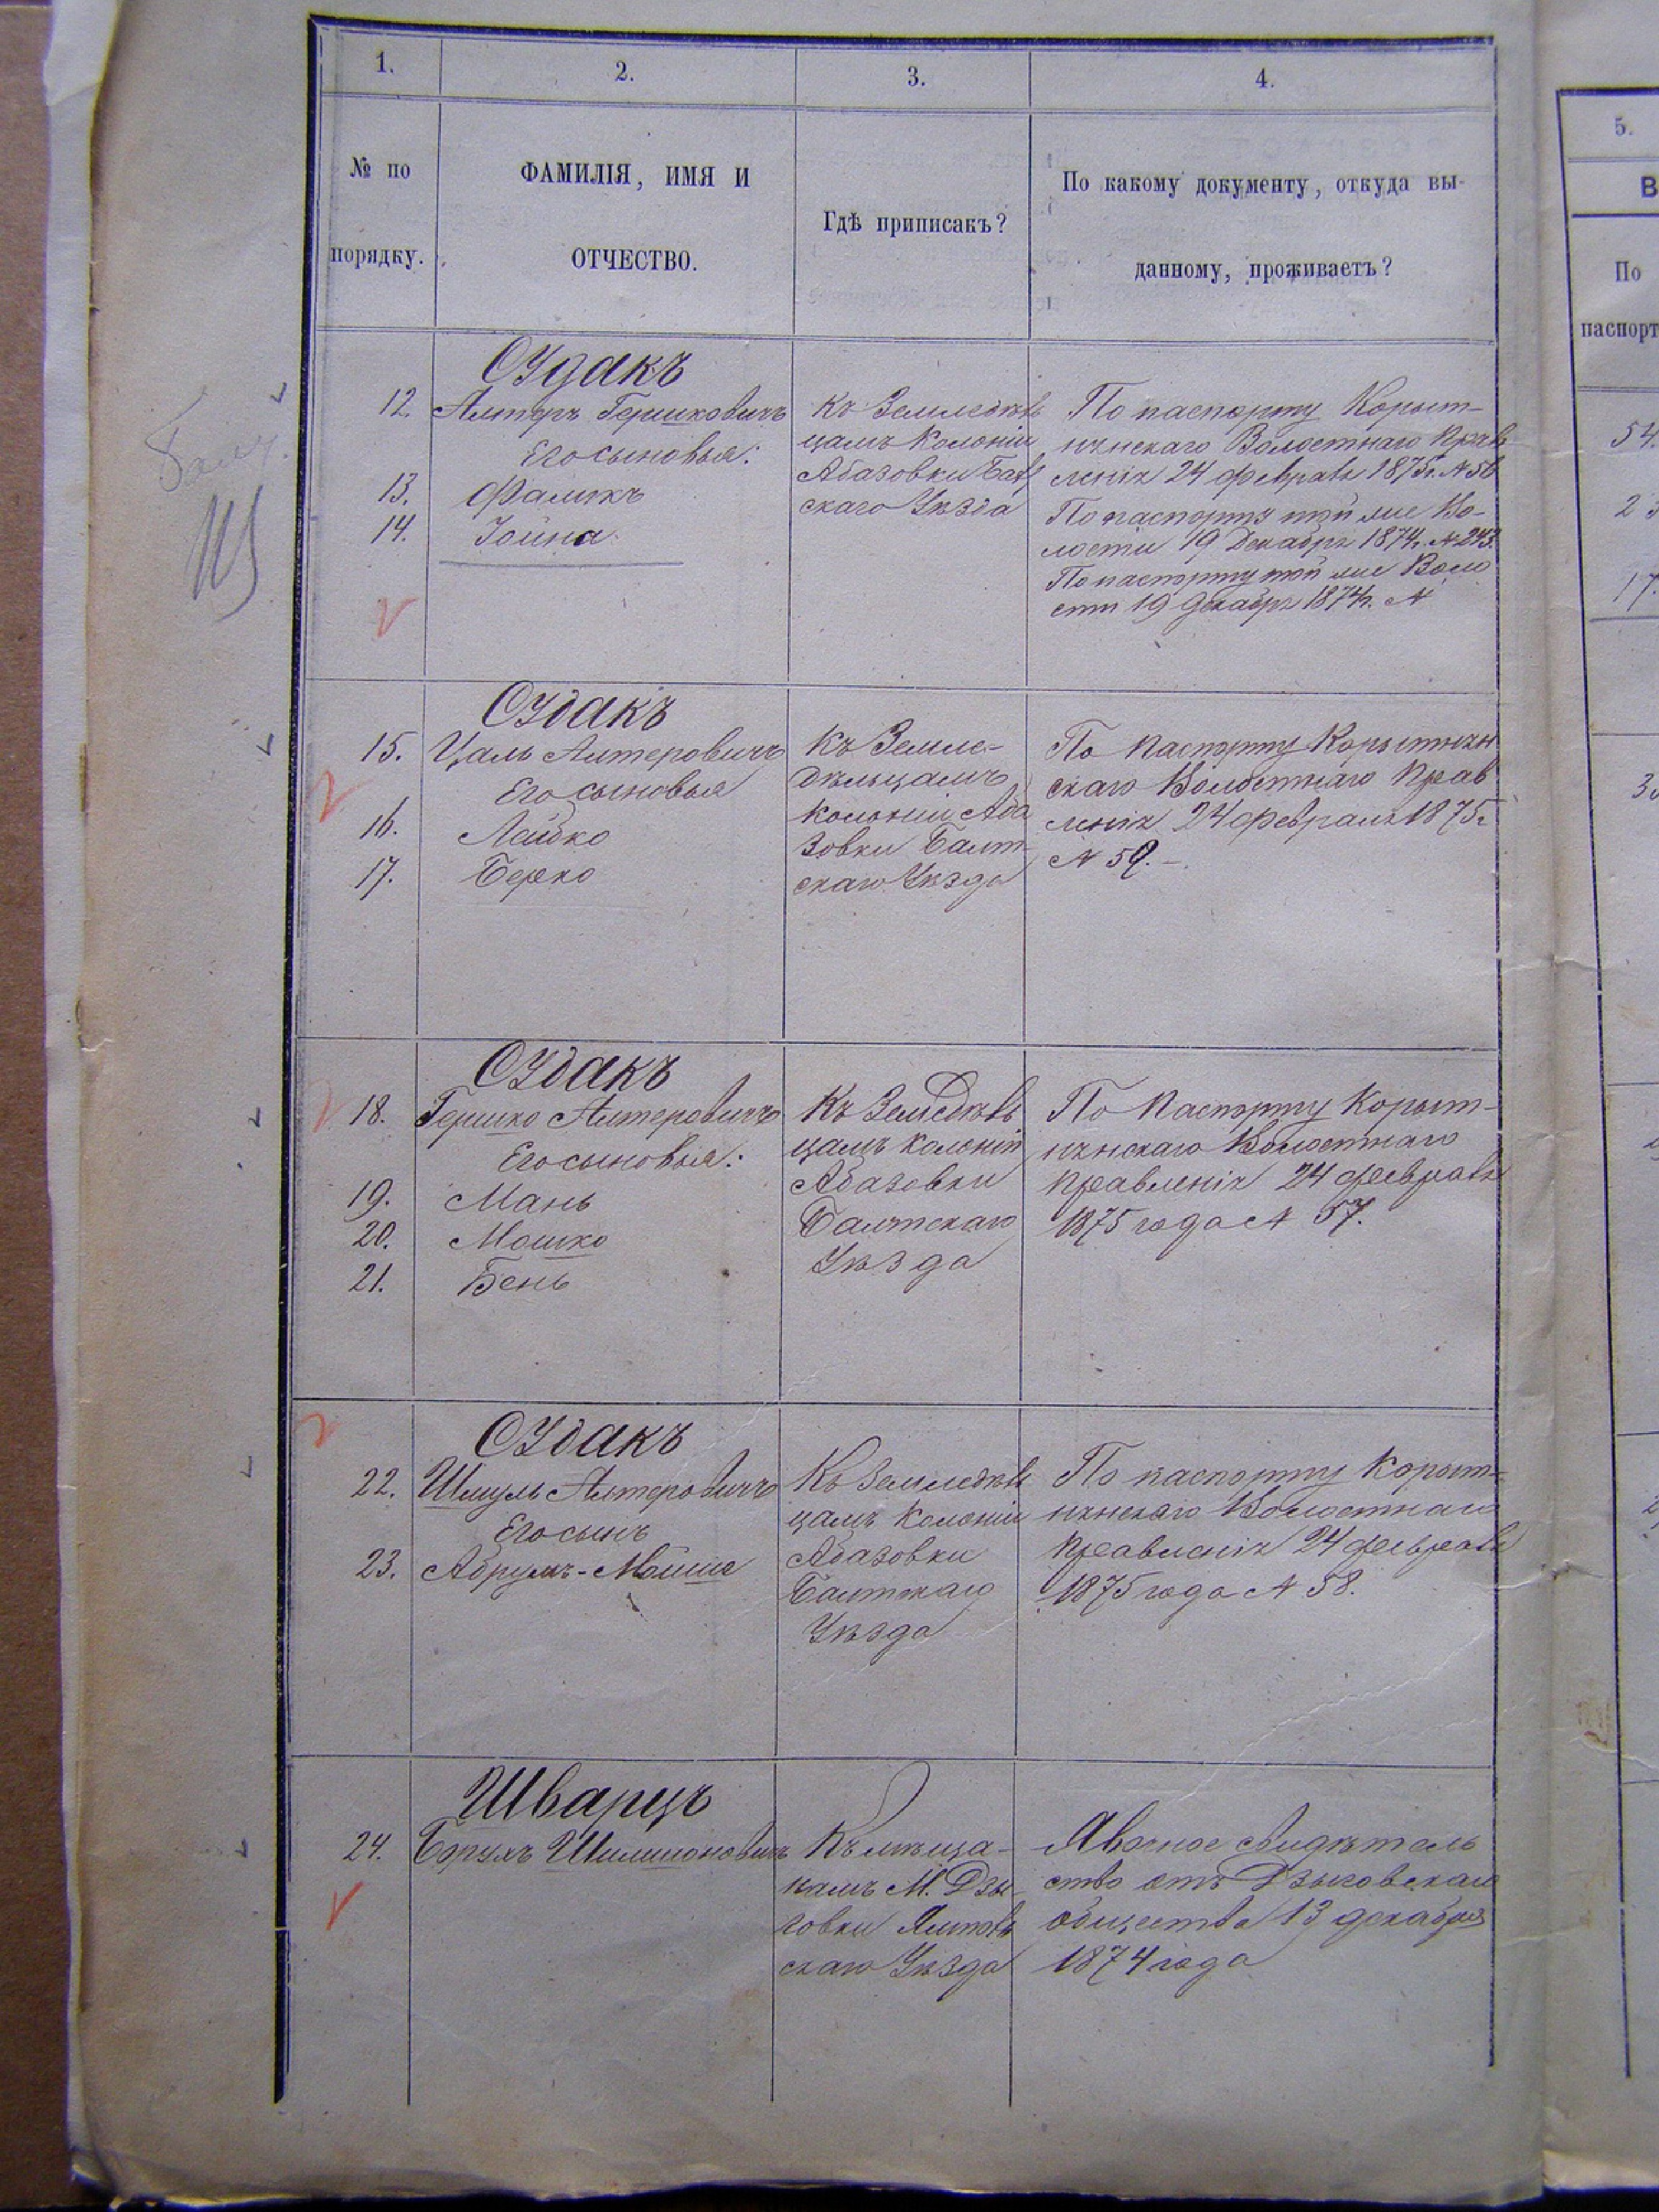 1.
2.
3.
4.
№ по
порядку.
ФАМИЛІЯ, ИМЯ И
ОТЧЕСТВО.
Гдѣ приписакъ?
По какому документу, откуда вы-
данному, проживаетъ?
5.
В
По
паспорт
Судакъ
12. Алтеръ Гершковичъ
Его сыновья:
13. Фаликъ
14. Іойна
Къ Земледѣль
цамъ Колоніи
Абазовки Балт
скаго Уѣзда
По паспорту Корыт-
нянскаго Волостнаго Прав
ленія 24 февраля 1875г. №56
По паспорту той же Во-
лости 19 Декабря 1874г. №243.
По паспорту той же Воло
сти 19 Декабря 1874г. №
54.
2
17.
Судакъ
15. Цаль Алтеровичъ
Его сыновья
16. Лейбко
17. Берко
Къ Земле-
дѣльцамъ
Колоніи Аба
зовки Балт-
скаго Уѣзда
По Паспорту Корытнян
скаго Волостнаго Прав
ленія 24 февраля 1875г
№ 59.-
3
Судакъ
18. Гершко Алтеровичъ
Его сыновья:
19. Мань
20. Мошко
21. Бень
Къ Земледѣль
цамъ Колоніи
Абазовки
Балтскаго
Уѣзда
По Паспорту Корыт-
нянскаго Волостнаго
Правленія 24 февраля
1875 года № 57.
Судакъ
22. Шмуль Алтеровичъ
Его сынъ
23. Абрумъ-Мошко
Къ Земледѣль
цамъ Колоніи
Абазовки
Балтскаго
Уѣзда
По паспорту Корыт-
нянскаго Волостнаго
Правленія 24 февраля
1875 года № 58.
Шварцъ
24. Борухъ Шлимоновичъ
Къ мѣща-
намъ М. Дзы-
говки Ямполь
скаго Уѣзда
Явочное свидѣтель
ство отъ Дзыговскаго
общества 13 декабря
1874 года